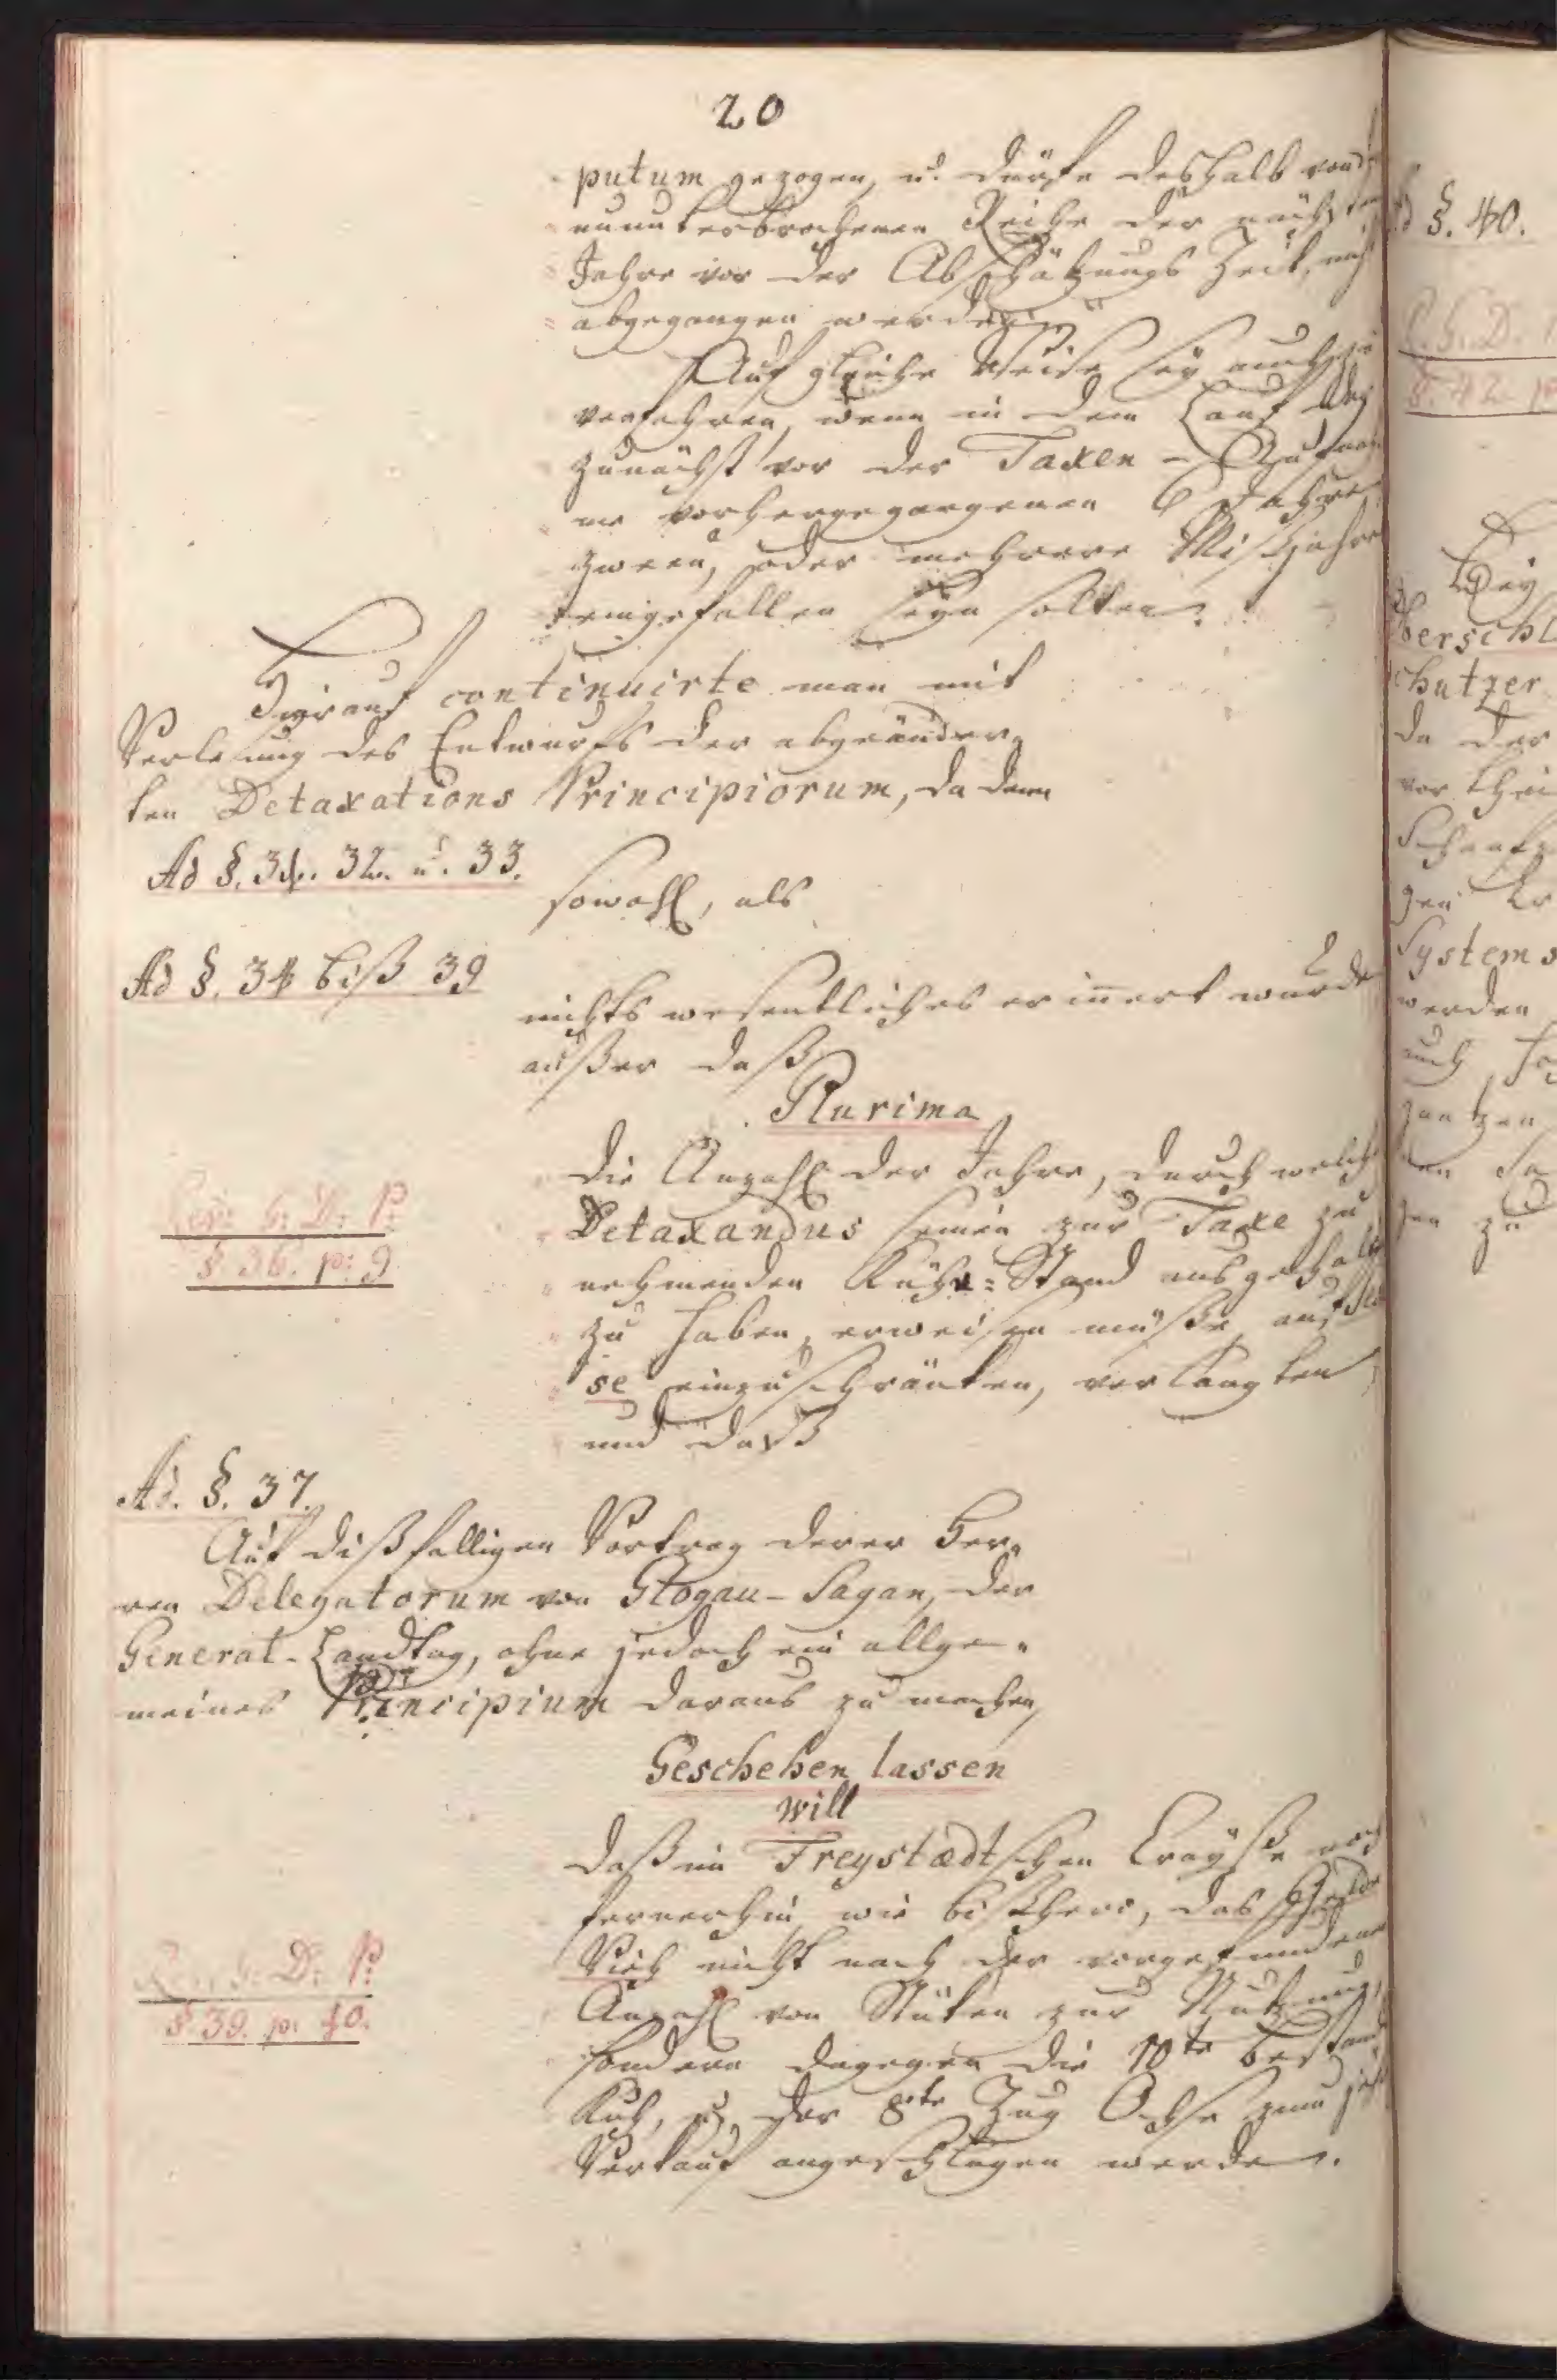 20
putum gezogen, u. dürfe deshalb von d
ununterbrochenen Reihe der nächsten
Jahre vor der Abschätzungs Zeit, nicht
abgegangen werden.
Auf gleiche Weise sey auch zu
verfahren, wenn in dem Lauf der
zunächst vor der Taxen - Aufnah
me vorhergegangenen 6 Jahre,
zween, oder mehrere Mißjahre
eingefallen seyn solten.
Hierauf continuirte man mit
Verlesung des Entwurfs der abgeänder„
ten Detaxations Principiorum, da denn
Ad §. 31. 32. u. 33.
sowohl, als
Ad §. 34 biß 39
nichts wesentliches erinnert wurde
außer daß
Plurima
die Anzahl der Jahre, durch welche
Detaxandus seinen zur Taxe zu
nehmenden Kühe-Stand ausgehalten
zu haben, erweisen müße, auf
se einzuschränken, verlangten
und daß
Rev: G: D: P:
§ 36. p: 9
Ad. §. 37.
Auf dißfälligen Vortrag derer Her„
ren Delegatorum von Glogau-Sagan, der
General-Landtag, ohne jedoch ein allge„
meines Principium daraus zu machen,
Geschehen lassen
will
daß im Freystædtschen Crayße noch
fernerhin, wie bißhero, das
Vieh nicht nach der vorgefundenen
Anzahl von Stüken zur Nutzung,
sondern dagegen die 10te bestand
Kuh, u. der 8te Zug Ochse zum
Verkauf angeschlagen werde.
Rev: G: D: P:
§ 39. p: 40.
§. 40.
§. 42
Bey
berschl
chutzer
da der
vor thei
Schaafz
gen
Systems
werden
auch
zu